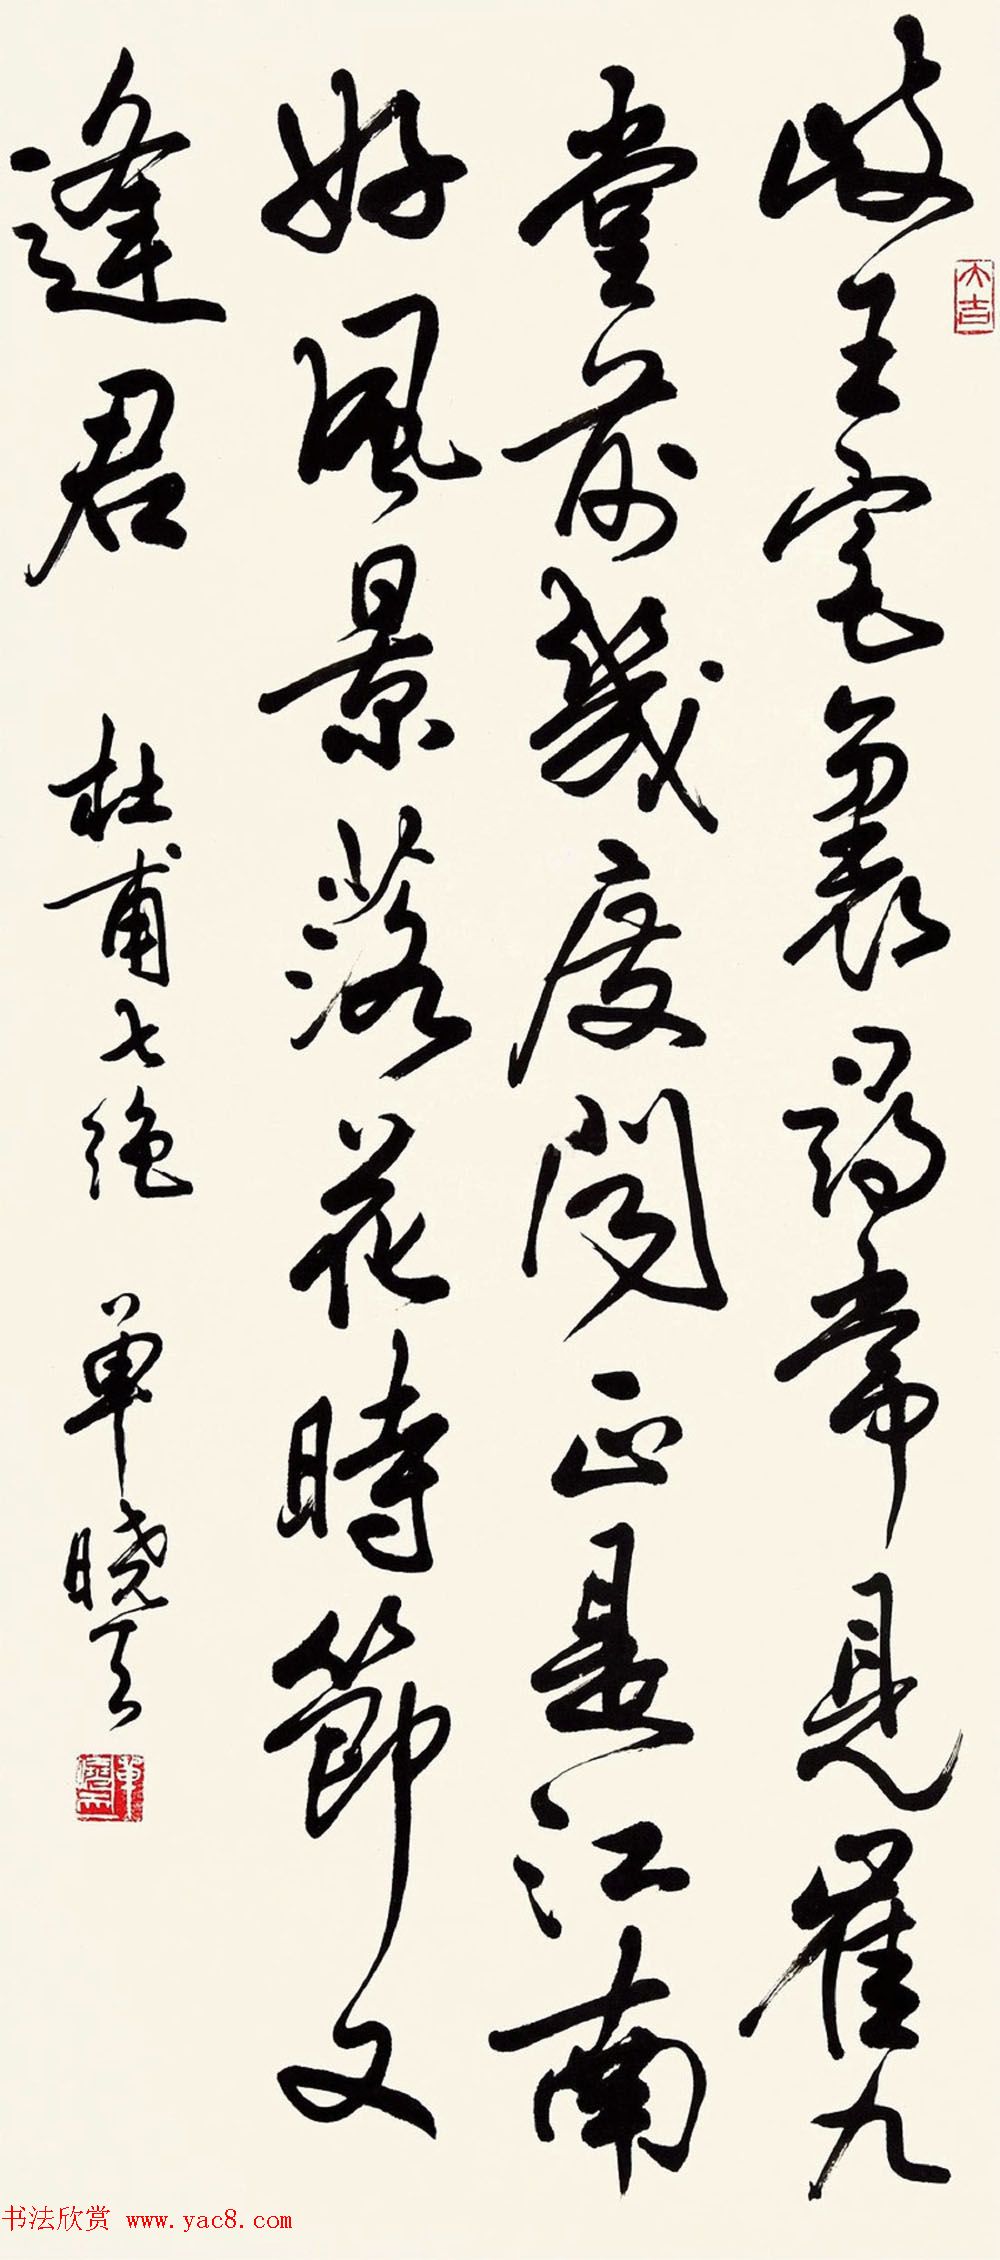 大吉
岐王宅裏尋常見崔九
堂前幾度聞正是江南
好風景落花時節又
逢君 杜甫七絕 單曉天
書法欣赏 www.yac8.com